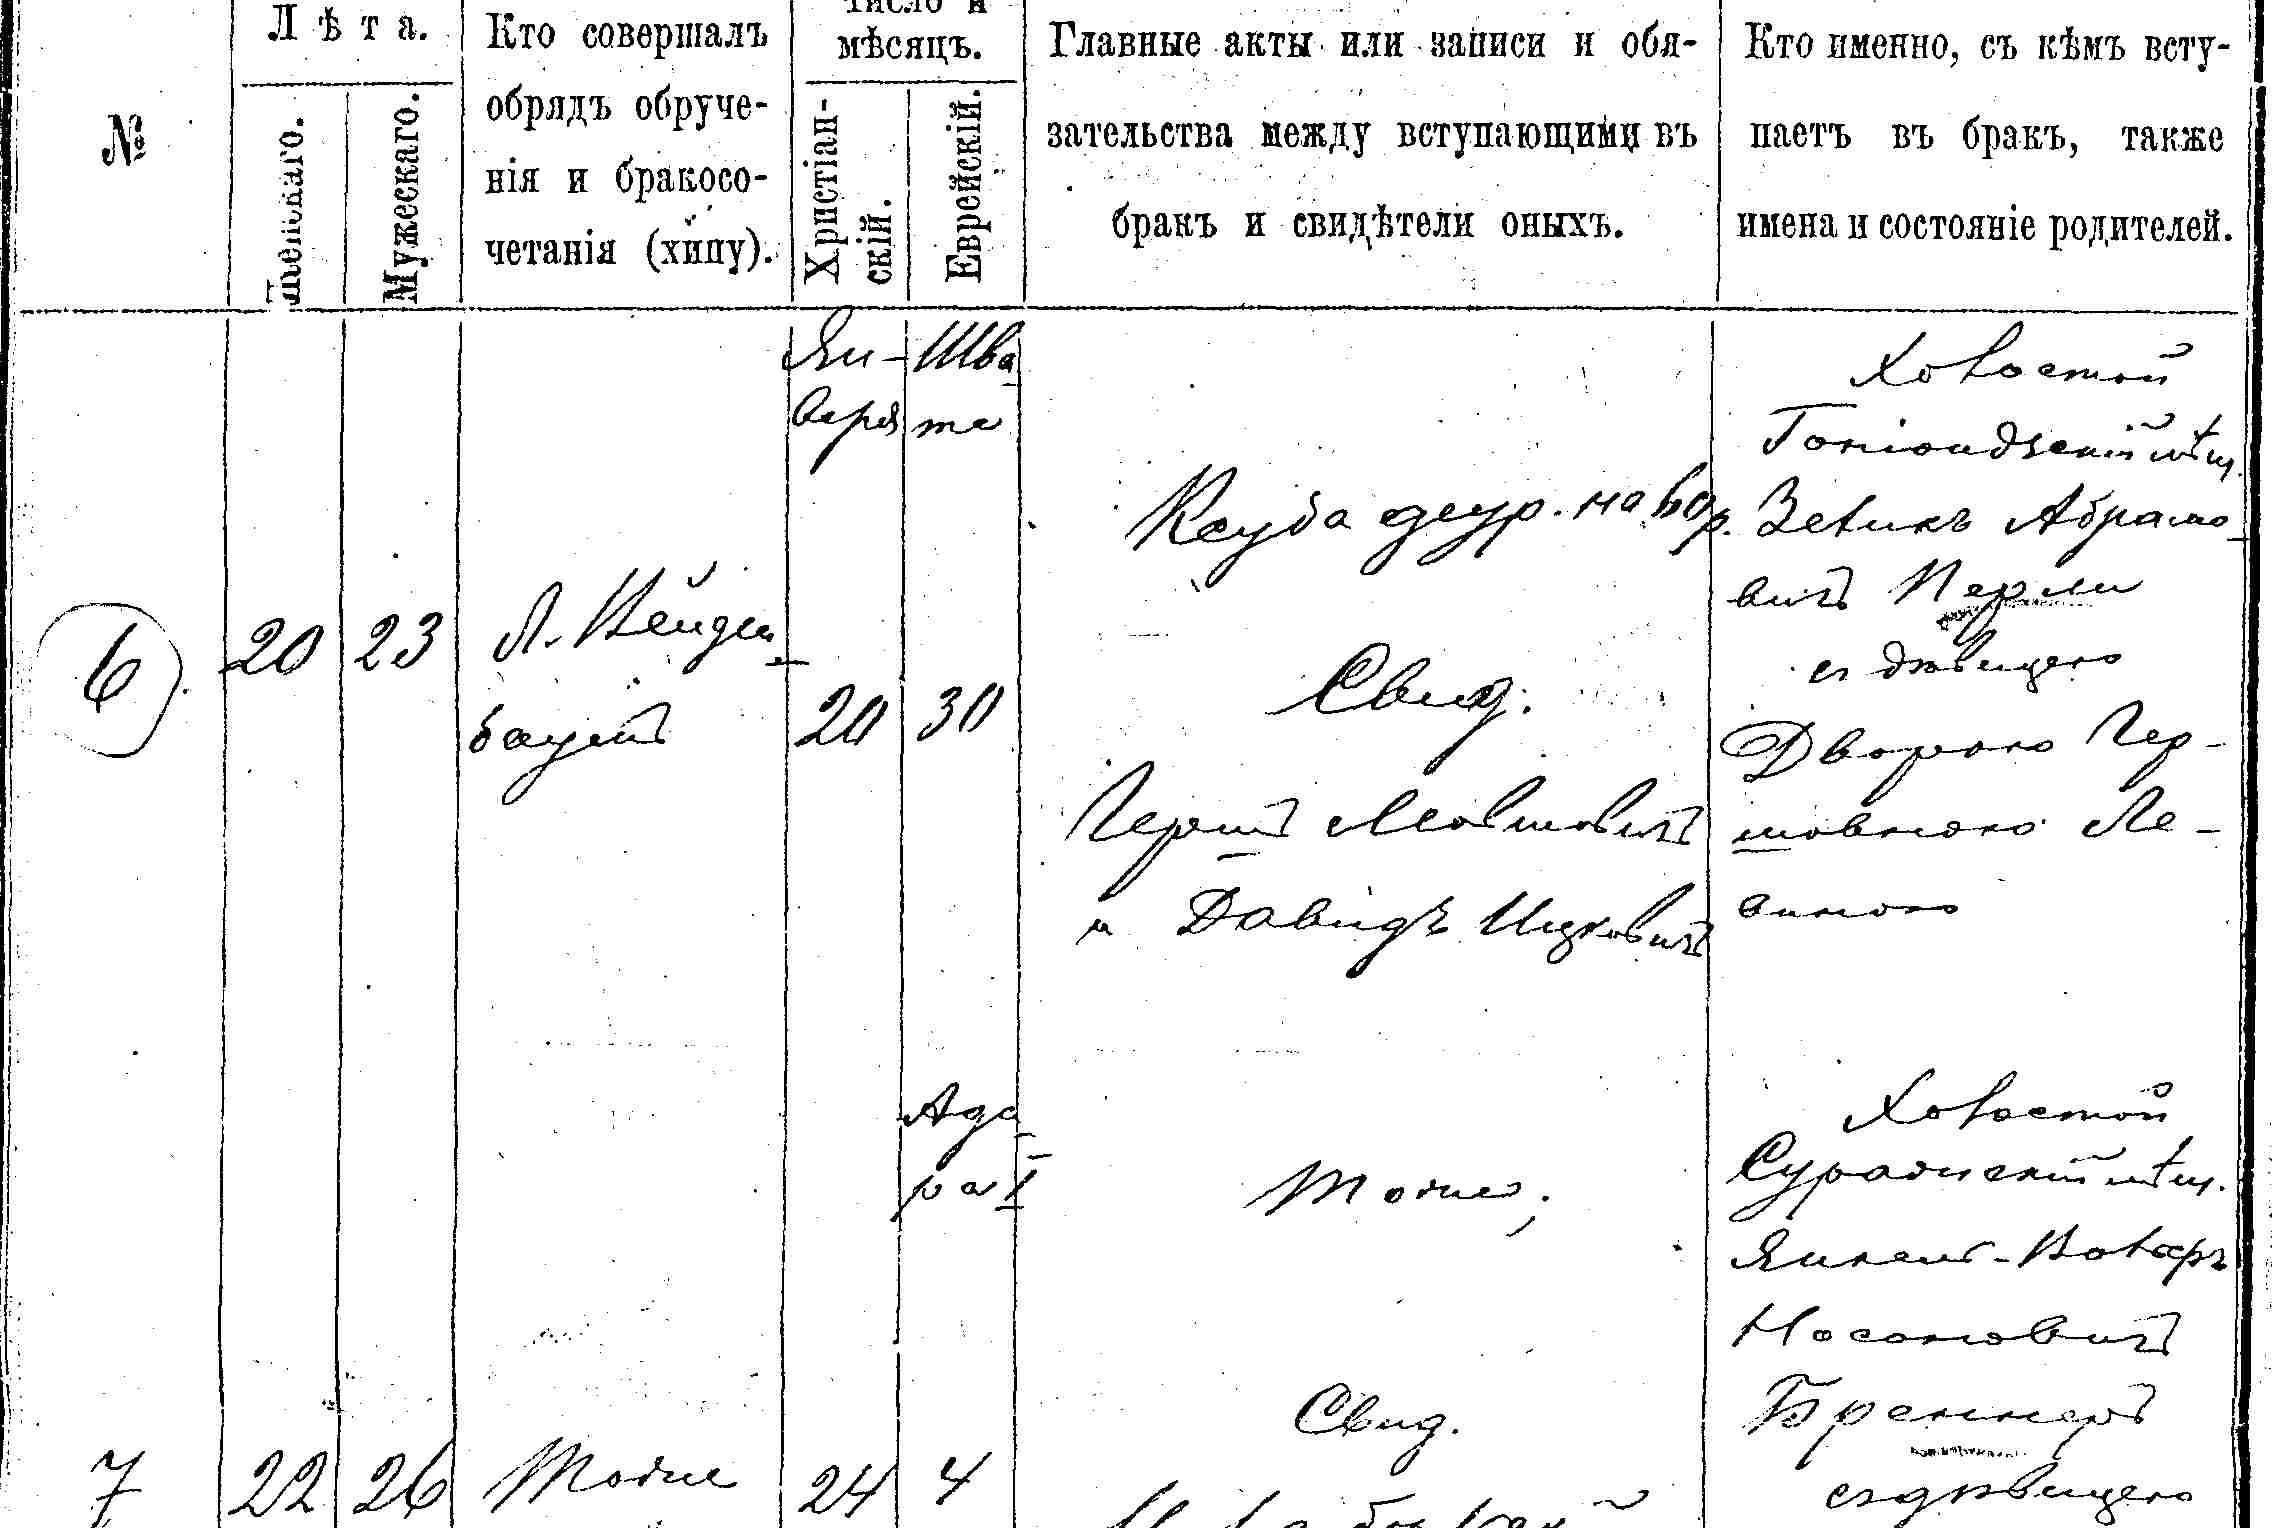 №
Лѣта.
Женскаго.
Мужескаго.
Кто совершалъ
обрядъ обруче-
нія и бракосо-
четанія (хипу).
Число и
мѣсяцъ.
Христіан-
скій.
Еврейскій.
Главные акты или записи и обя-
зательства между вступающими въ
бракъ и свидѣтели оныхъ.
Кто именно, съ кѣмъ всту-
паетъ въ бракъ, также
имена и состояніе родителей.
6
20
23
Л. Вейден-
баумъ
Ян-
варя
20
Шва-
та
30
на
Свид.
Гершъ Мовшовичъ
и Давидъ Ицковичъ
Холостой
Гоніондзскій мѣщ.
Зеликъ Абрамо-
вичъ Перли
съ дѣвицею
Двораю Гер-
шовною Ле-
виною
7
22
26
Тоже
24
Ада-
ра I
4
Тоже;
Свид.
Холостой
Суражскій мѣщ.
Янкель-
Носоновичъ
Бреннеръ
съ дѣвицею